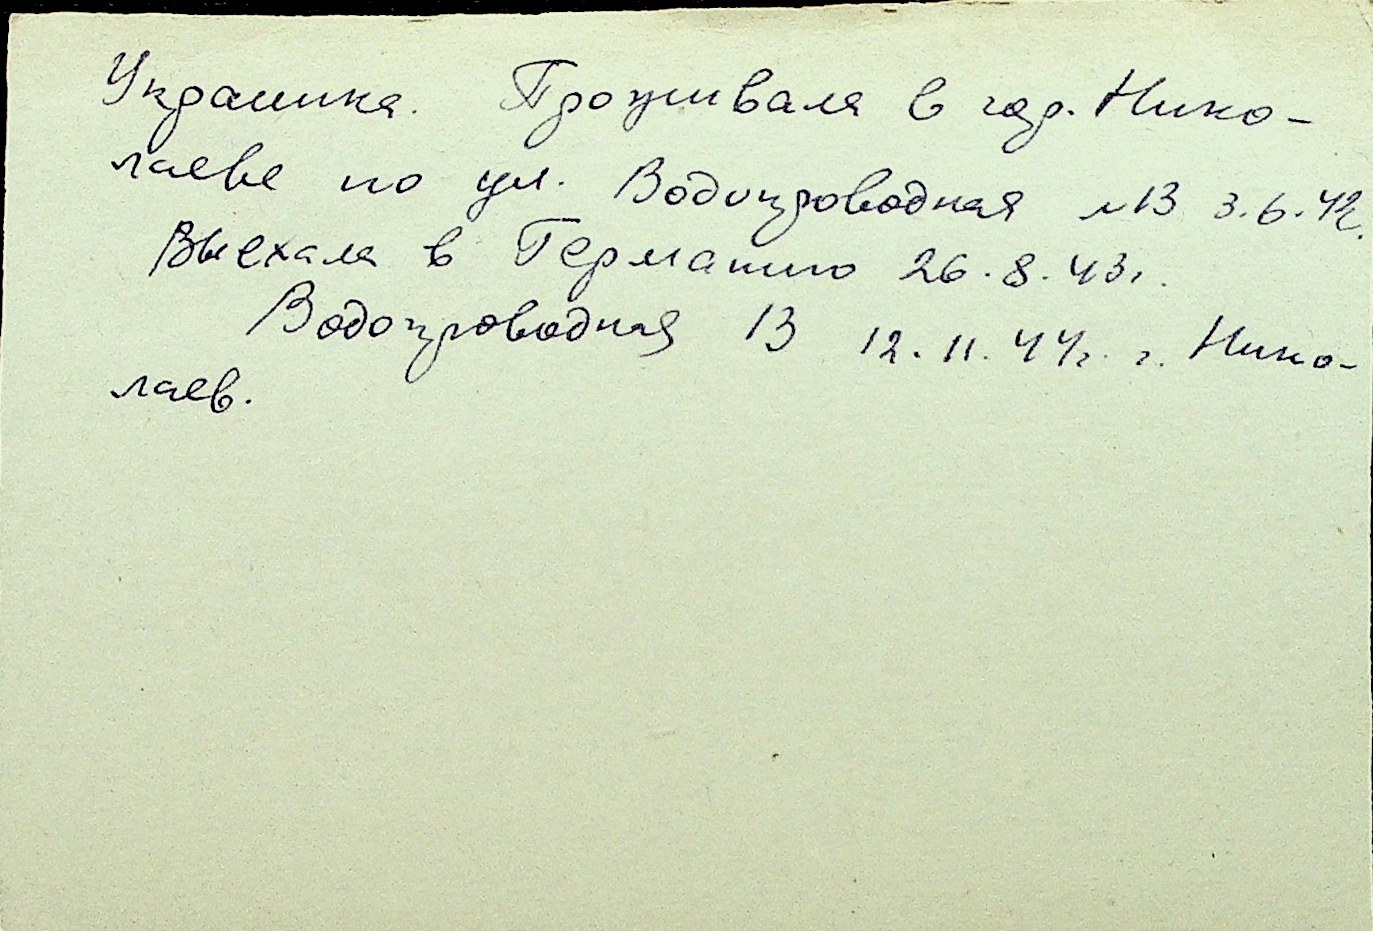 Украинка. Проживала в гор. Нико-
лаеве по ул. Водопроводная №13 3.6.42г.
Выехала в Германию 26.8.43г.
Водопроводная 13 12.11.44г. г. Нико-
лаев.